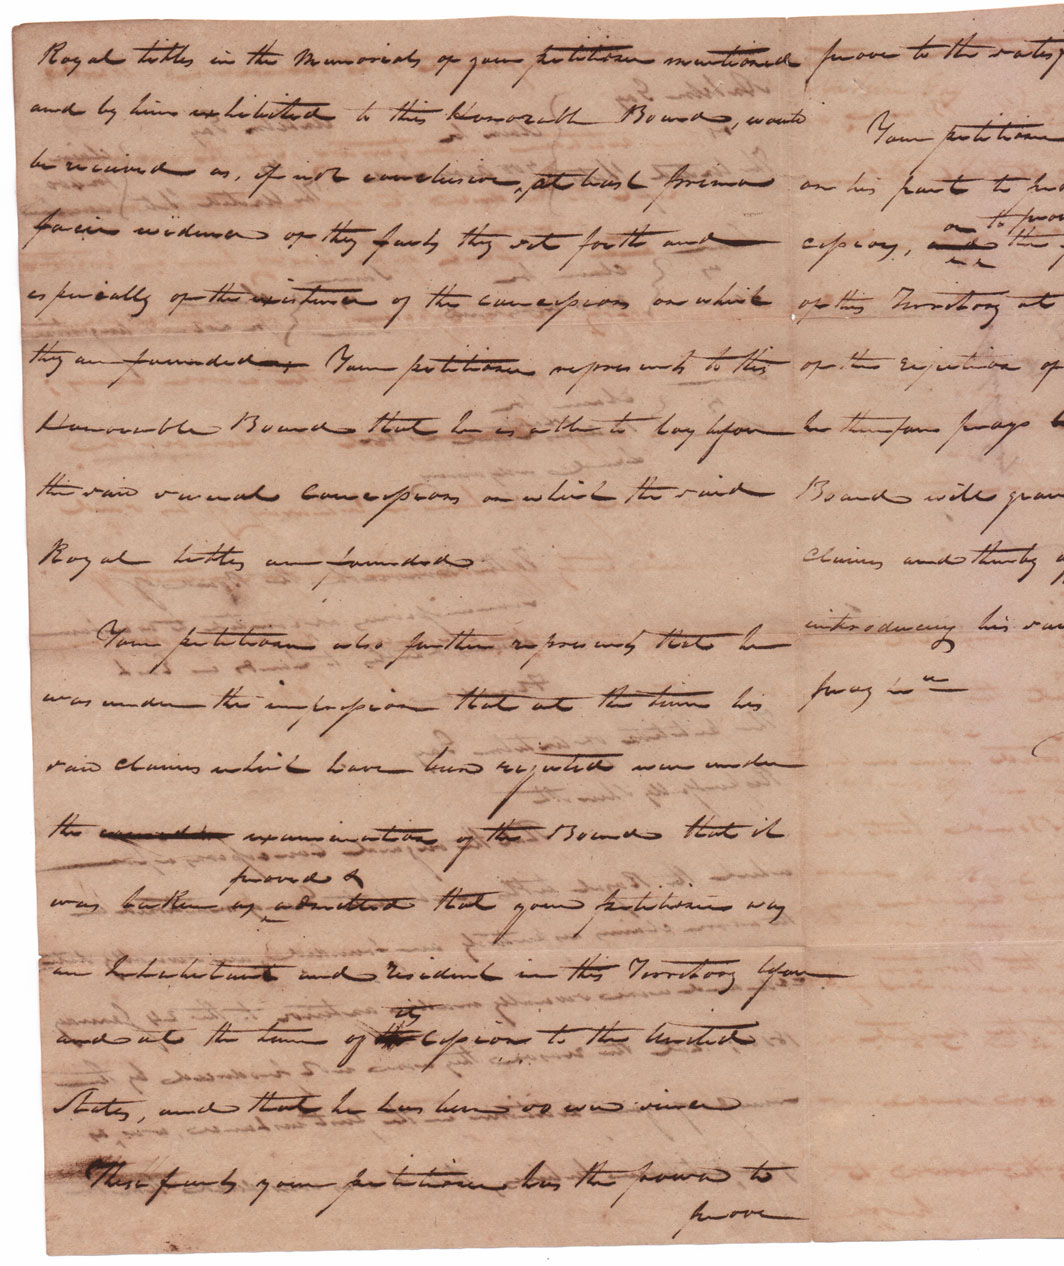 Royal titles in the Memorials of your petitioner mentioned
and by him exhibited to this Honorable Board, would
be recieved as, if not conclusive, at least prima
facie evidence of the facts they set forth and
especially of the existence of the concessions on which
they are founded. Your petitioner represents to this
Honourable Board that he is able to lay before
the said several Concessions on which the said
Royal titles are founded
Your petitioner also further represents that he
was under the impression that at the time his
said claims which have been rejected were under
the examination of the Board that it
proved &
was taken as admitted that your petitioner was
an Inhabitant and resident in this Territory before
its
and at the time of cession to the United
States, and that he has been so ever since
These facts your petitioner has the power to
prove
prove to the satisf
Your petitioner
on his part to
or to prov
cessions, and the
of this Territory at
of the rejection of
he therefore prays
Board will gran
claims and thereby
introducing his
pray &c